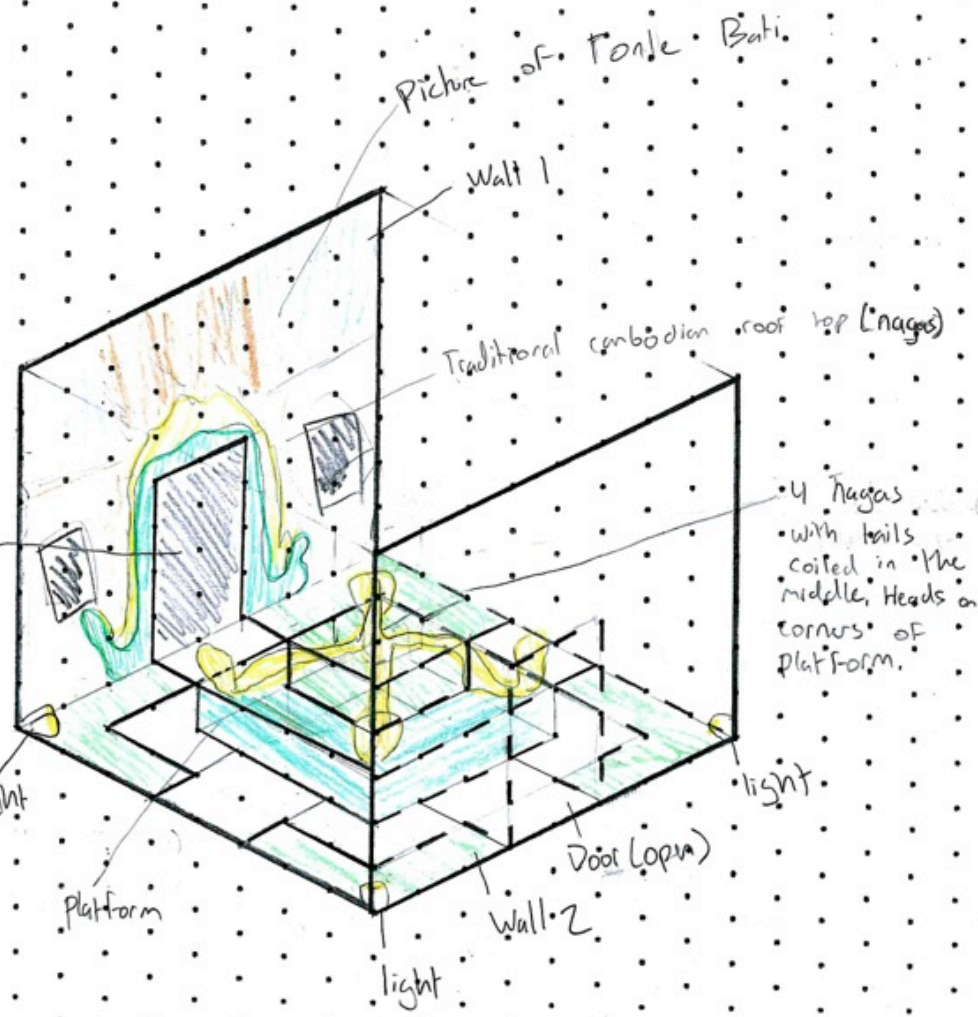 Picture of Tonle Bati
Wall 1
Traditional cambodian roof top (nagas)
4 nagas
with tails
coiled in the
middle, Heads on
corners of
platform.
ght
light
Door (open)
platform
Wall 2
light